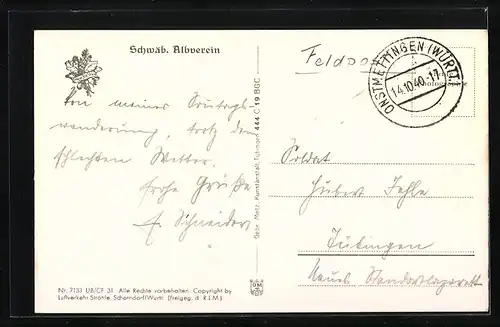 Schwäb. Albverein
Feldpost
ONSTMETTINGEN (WÜRTT.)
14.10.40.-17
Von meiner Sonntags-
wanderung, trotz dem
schlechten Wetter,
frohe Grüße
A. Schneider
Gebr. Metz, Kunstanstalt, Tübingen 444 C 19 BGC
Soldat
Huber Fehle
Tübingen
Neues Standortlazarett
Nr. 7133 UB/CF 31 Alle Rechte vorbehalten Copyright by
Luftverkehr Strähle, Schorndorf/Württ. (freigeg. d. R.L.M.)